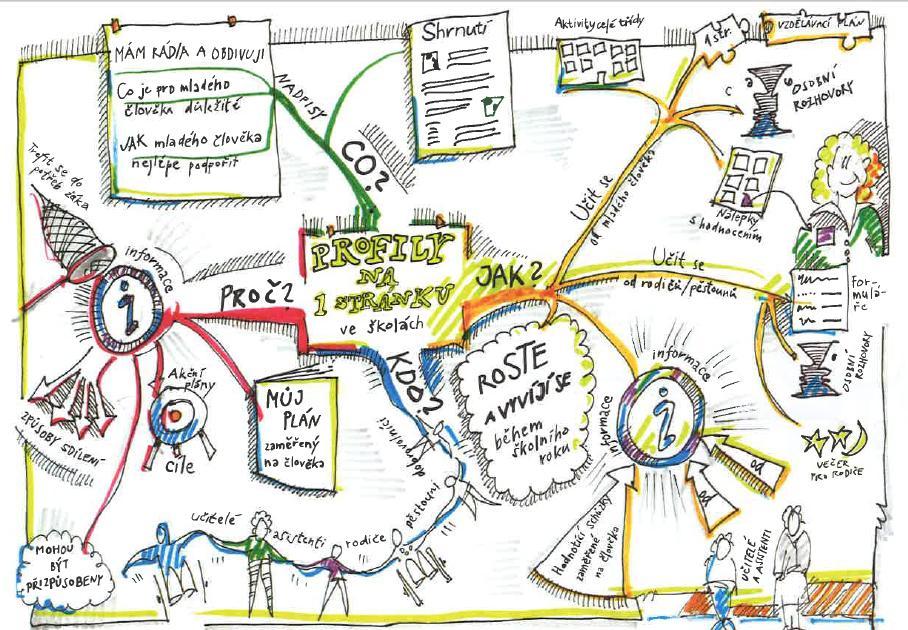 PROFILY
NA
1 STRÁNKU
ve školách
CO?
NADPISY
MÁM RÁD/A A OBDIVUJI
Co je pro mladého
člověka důležité
JAK mladého člověka
nejlépe podpořit
Shrnutí
JAK?
Učit se
od mladého člověka
Aktivity celé třídy
1 str.
VZDĚLÁVACÍ PLÁN
OSOBNÍ
ROZHOVORY
Nálepky
s hodnocením
Učit se
od rodičů/pěstounů
For-
mulá-
ře
OSOBNÍ
ROZHOVORY
VEČER
PRO RODIČE
informace
informace
i
od
od
Hodnotící schůzky
zaměřené
na člověka
UČITELÉ
A ASISTENTI
ROSTE
A VYVÍJÍ SE
během
školního
roku
KDO?
dobrovolníci
pěstouni
rodiče
asistenti
učitelé
PROČ?
informace
i
Trefit se do
potřeb žáka
ZPŮSOBY SDÍLENÍ
Akční
plány
cíle
MŮJ
PLÁN
zaměřený
na člověka
MOHOU
BÝT
PŘIZPŮSOBENY